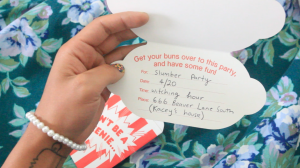 Get your buns over to this party,
and have some fun!
For: Slumber Party
Date: 4/20
Time: witching hour
Place: 666 Beaver Lane South
(Kacey's house)
N'T BE
ENIE